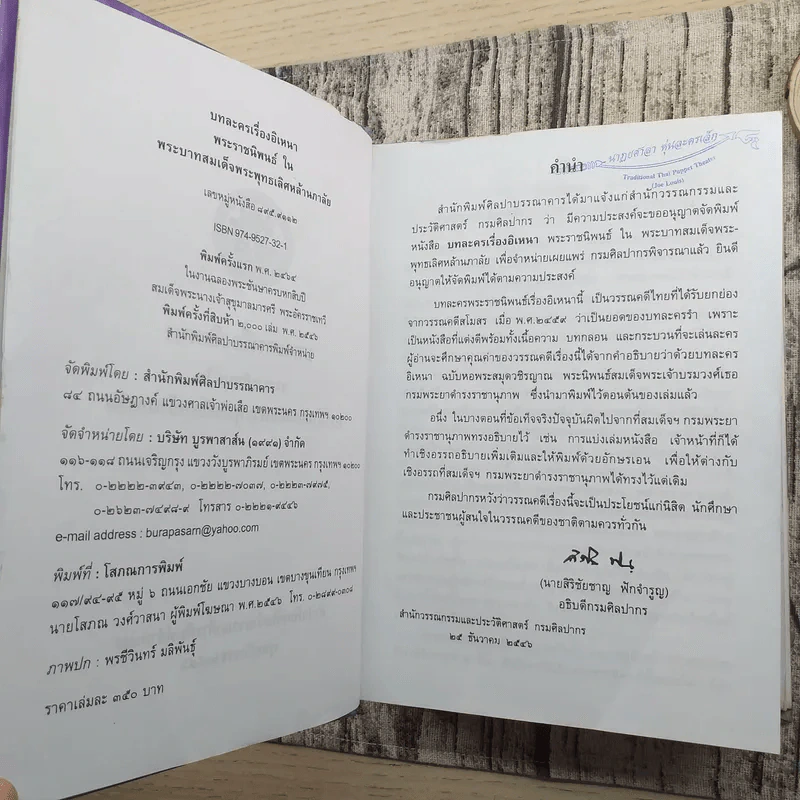 บทละครเรื่องอิเหนา
พระราชนิพนธ์ ใน
พระบาทสมเด็จพระพุทธเลิศหล้านภาลัย
เลขหมู่หนังสือ ๘๙๕.๙๑๑๒
ISBN 974-9527-32-1
พิมพ์ครั้งแรก พ.ศ. ๒๔๖๔
ในงานฉลองพระชันษาครบหกสิบปี
สมเด็จพระนางเจ้าสุขุมาลมารศรี พระอัครราชเทวี
พิมพ์ครั้งที่สิบห้า ๒,๐๐๐ เล่ม พ.ศ. ๒๕๔๖
สำนักพิมพ์ศิลปาบรรณาคารพิมพ์จำหน่าย
จัดพิมพ์โดย : สำนักพิมพ์ศิลปาบรรณาคาร
๘๔ ถนนอัษฎางค์ แขวงศาลเจ้าพ่อเสือ เขตพระนคร กรุงเทพฯ ๑๐๒๐๐
จัดจำหน่ายโดย : บริษัท บูรพาสาส์น (๑๙๙๑) จำกัด
๑๑๖-๑๑๘ ถนนเจริญกรุง แขวงวังบูรพาภิรมย์ เขตพระนคร กรุงเทพฯ ๑๐๒๐๐
โทร. ๐-๒๒๒๒-๓๙๔๓, ๐-๒๒๒๒-๗๐๓๗, ๐-๒๒๒๓-๗๙๗๕,
๐-๒๖๒๓-๗๔๙๘-๙ โทรสาร ๐-๒๒๒๑-๙๔๔๖
e-mail address : burapasarn@yahoo.com
พิมพ์ที่ : โสภณการพิมพ์
๑๑๗/๙๔-๙๕ หมู่ ๖ ถนนเอกชัย แขวงบางบอน เขตบางขุนเทียน กรุงเทพฯ
นายโสภณ วงศ์วาสนา ผู้พิมพ์โฆษณา พ.ศ.๒๕๔๖ โทร. ๐-๒๘๙๙-๐๓๐๘
ภาพปก : พรชีวินทร์ มลิพันธุ์
ราคาเล่มละ ๓๕๐ บาท
คำนำ
นาฏยศาลา หุ่นละครเล็ก
Traditional Thai Puppet Theatre
(Joe Louis)
สำนักพิมพ์ศิลปาบรรณาคารได้มาแจ้งแก่สำนักวรรณกรรมและ
ประวัติศาสตร์ กรมศิลปากร ว่า มีความประสงค์จะขออนุญาตจัดพิมพ์
หนังสือ บทละครเรื่องอิเหนา พระราชนิพนธ์ ใน พระบาทสมเด็จพระ-
พุทธเลิศหล้านภาลัย เพื่อจำหน่ายเผยแพร่ กรมศิลปากรพิจารณาแล้ว ยินดี
อนุญาตให้จัดพิมพ์ได้ตามความประสงค์
บทละครพระราชนิพนธ์เรื่องอิเหนานี้ เป็นวรรณคดีไทยที่ได้รับยกย่อง
จากวรรณคดีสโมสร เมื่อ พ.ศ.๒๔๕๙ ว่าเป็นยอดของบทละครรำ เพราะ
เป็นหนังสือที่แต่งดีพร้อมทั้งเนื้อความ บทกลอน และกระบวนที่จะเล่นละคร
ผู้อ่านจะศึกษาคุณค่าของวรรณคดีเรื่องนี้ได้จากคำอธิบายว่าด้วยบทละคร
อิเหนา ฉบับหอพระสมุดวชิรญาณ พระนิพนธ์สมเด็จพระเจ้าบรมวงศ์เธอ
กรมพระยาดำรงราชานุภาพ ซึ่งนำมาพิมพ์ไว้ตอนต้นของเล่มแล้ว
อนึ่ง ในบางตอนที่ข้อเท็จจริงปัจจุบันผิดไปจากที่สมเด็จฯ กรมพระยา
ดำรงราชานุภาพทรงอธิบายไว้ เช่น การแบ่งเล่มหนังสือ เจ้าหน้าที่ก็ได้
ทำเชิงอรรถอธิบายเพิ่มเติมและให้พิมพ์ด้วยอักษรเอน เพื่อให้ต่างกับ
เชิงอรรถที่สมเด็จฯ กรมพระยาดำรงราชานุภาพได้ทรงไว้แต่เดิม
กรมศิลปากรหวังว่าวรรณคดีเรื่องนี้จะเป็นประโยชน์แก่นิสิต นักศึกษา
และประชาชนผู้สนใจในวรรณคดีของชาติตามควรทั่วกัน
(นายสิริชัยชาญ ฟักจำรูญ)
อธิบดีกรมศิลปากร
สำนักวรรณกรรมและประวัติศาสตร์ กรมศิลปากร
๒๕ ธันวาคม ๒๕๔๖